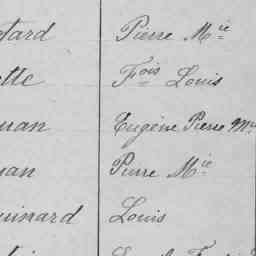 tard Pierre Mie
tte Fois Louis
uan Eugène Pierre Mie
uan Pierre Mie
uinard Louis